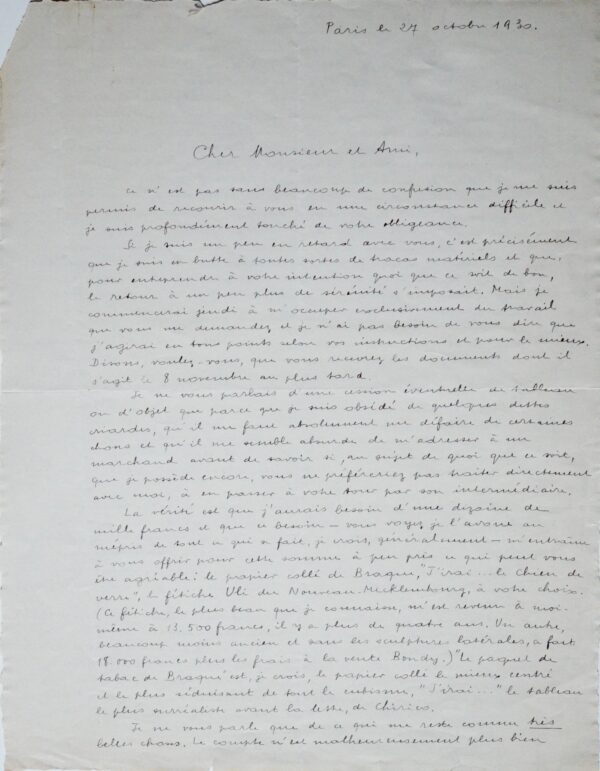 Paris le 27 octobre 1930.
Cher Monsieur et Ami,
Ce n'est pas sans beaucoup de confusion que je me suis
permis de recourir à vous en une circonstance difficile et
je suis profondément touché de votre obligeance.
Si je suis un peu en retard avec vous, c'est précisément
que je suis en butte à toutes sortes de tracas matériels et que,
pour entreprendre à votre intention quoi que ce soit de bon,
le retour à un peu plus de sérénité s'imposait. Mais je
commencerai jeudi à m'occuper exclusivement du travail
que vous me demandez et je n'ai pas besoin de vous dire que
j'agirai en tous points selon vos instructions et pour le mieux.
Disons, voulez-vous, que vous recevrez les documents dont il
s'agit le 8 novembre au plus tard.
Je ne vous parlais d'une cession éventuelle de tableau
ou d'objet que parce que je suis obsédé de quelques dettes
criardes, qu'il me faut absolument me défaire de certaines
choses et qu'il me semble absurde de m'adresser à un
marchand avant de savoir si, au sujet de quoi que ce soit,
que je possède encore, vous ne préféreriez pas traiter directement
avec moi, à en passer à votre tour par son intermédiaire.
La vérité est que j'aurais besoin d'une dizaine de
mille francs et que ce besoin – vous voyez, je l'avoue au
mépris de tout ce qui se fait, je crois, généralement – m'entraîne
à vous offrir pour cette somme à peu près ce qui peut vous
être agréable : le papier collé de Braque, "J'irai... le chien de
verre", le fétiche Uli du Nouveau-Mecklembourg, à votre choix.
(Ce fétiche, le plus beau que je connaisse, m'est revenu à moi-
même à 13.500 francs, il y a plus de quatre ans. Un autre,
beaucoup moins ancien et sans les sculptures latérales, a fait
18.000 francs plus les frais à la vente Bondy.) Le paquet de
tabac de Braque est, je crois, le papier collé le mieux centré
et le plus séduisant de tout le cubisme, "J'irai..." le tableau
le plus surréaliste avant la lettre, de Chirico.
Je ne vous parle que de ce qui me reste comme très
belles choses. Le compte n'est malheureusement plus bien